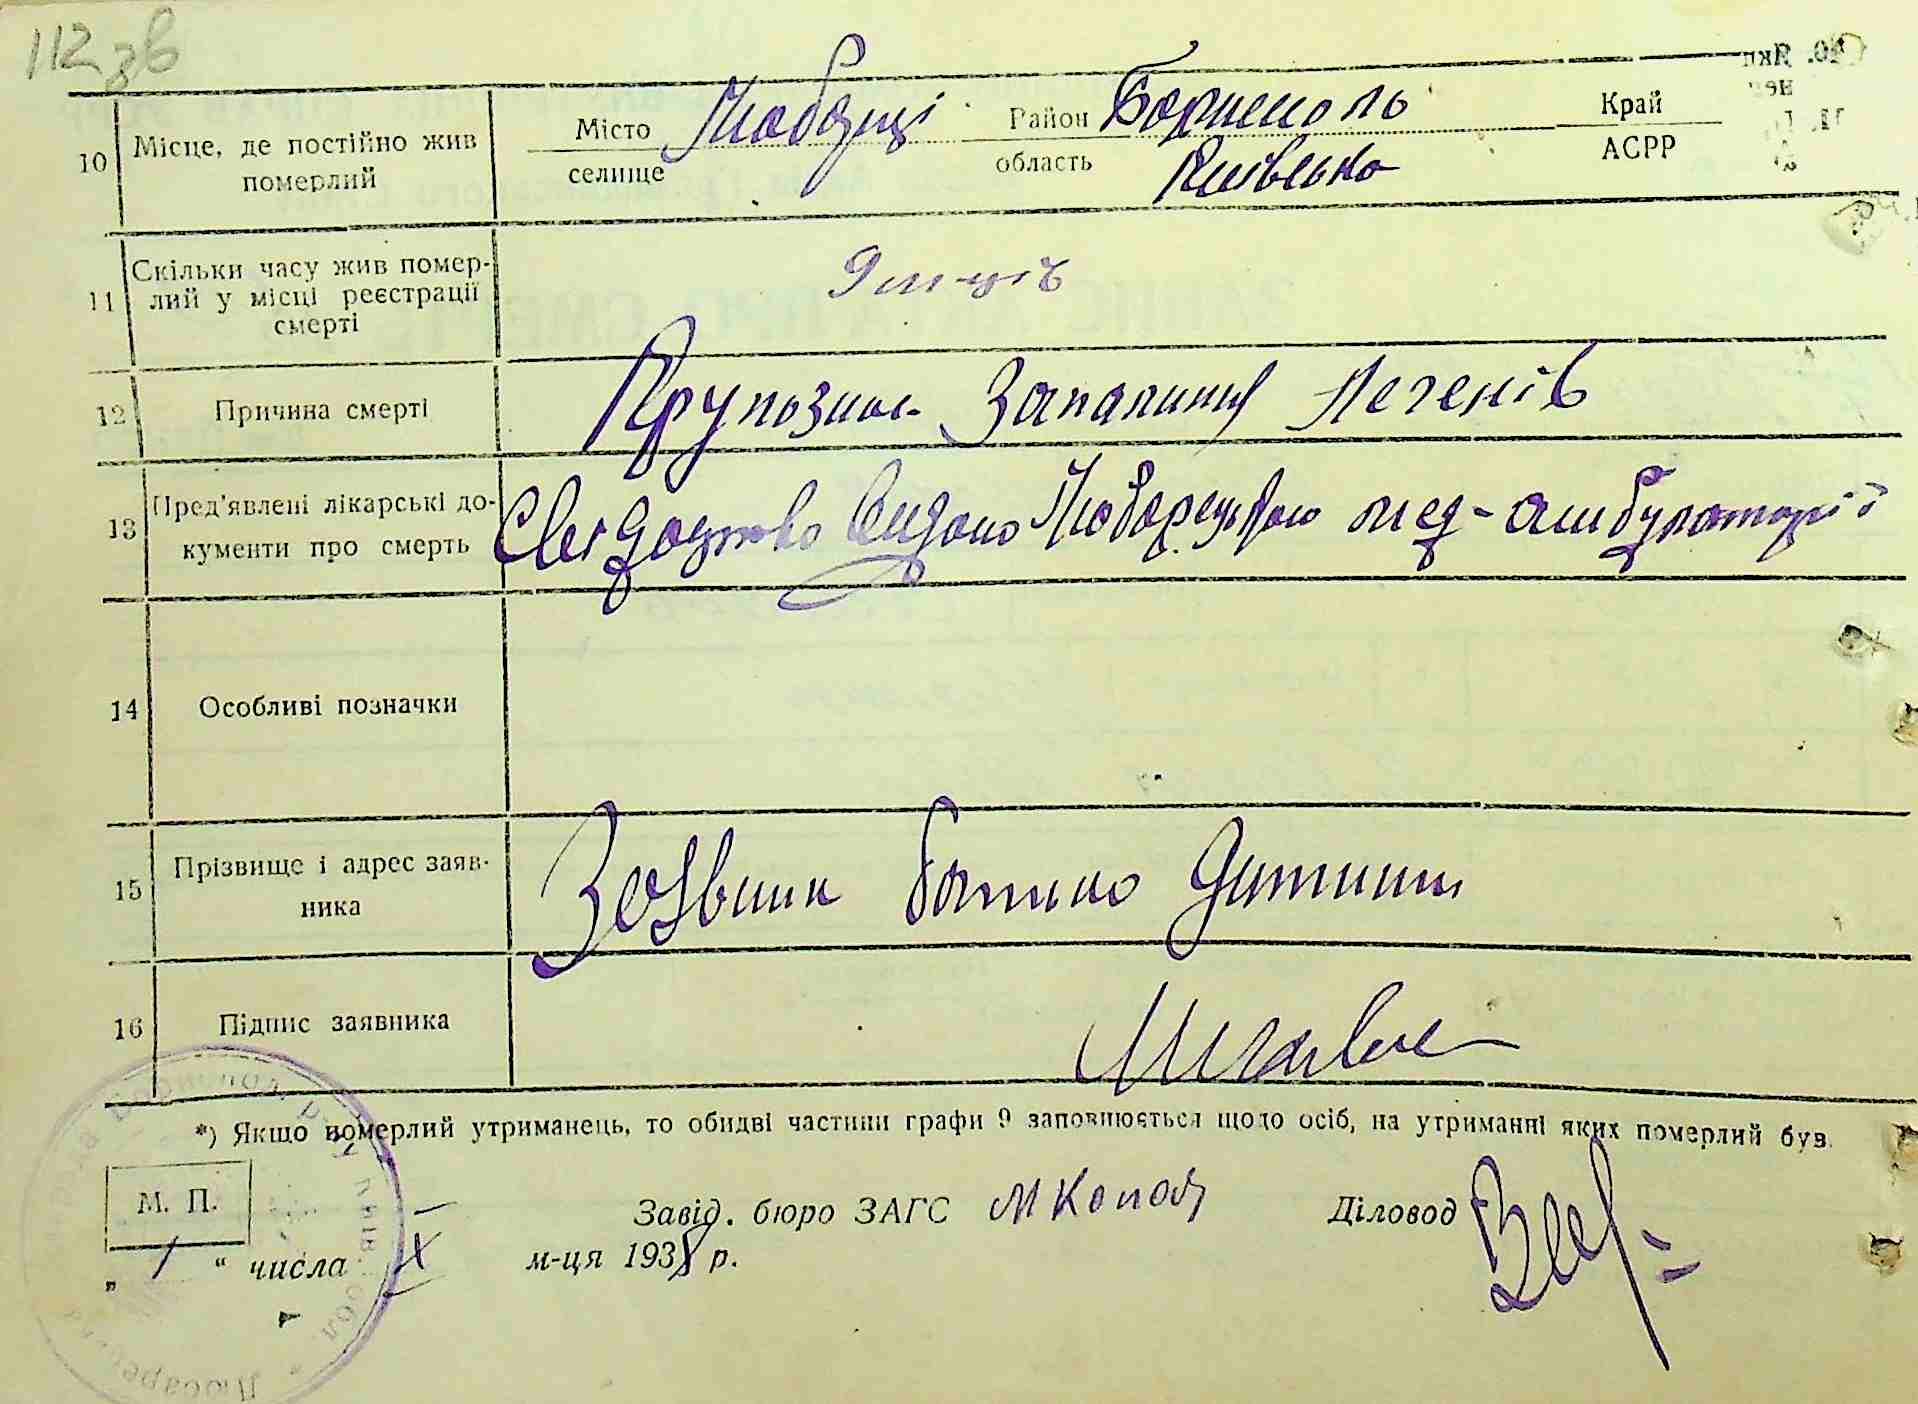 112 зв
10 Місце, де постійно жив померлий
Місто Любарці Район Бориспіль Край
селище область Київська АСРР
11 Скільки часу жив помер-
лий у місці реєстрації
смерті
9 м-ців
12 Причина смерті Крупозне Запалення Легенів
13 Пред'явлені лікарські до-
кументи про смерть
Свідоцтво Видано Любарецькою мед-амбулаторії
14 Особливі позначки
15 Прізвище і адрес заяв-
ника
Заявник батько Дитини
16 Підпис заявника
*) Якщо померлий утриманець, то обидві частини графи 9 заповнюється щодо осіб, на утриманні яких померлий був.
М. П.
Завід. бюро ЗАГС Діловод
„ 1 “ числа X м-ця 1938 р.